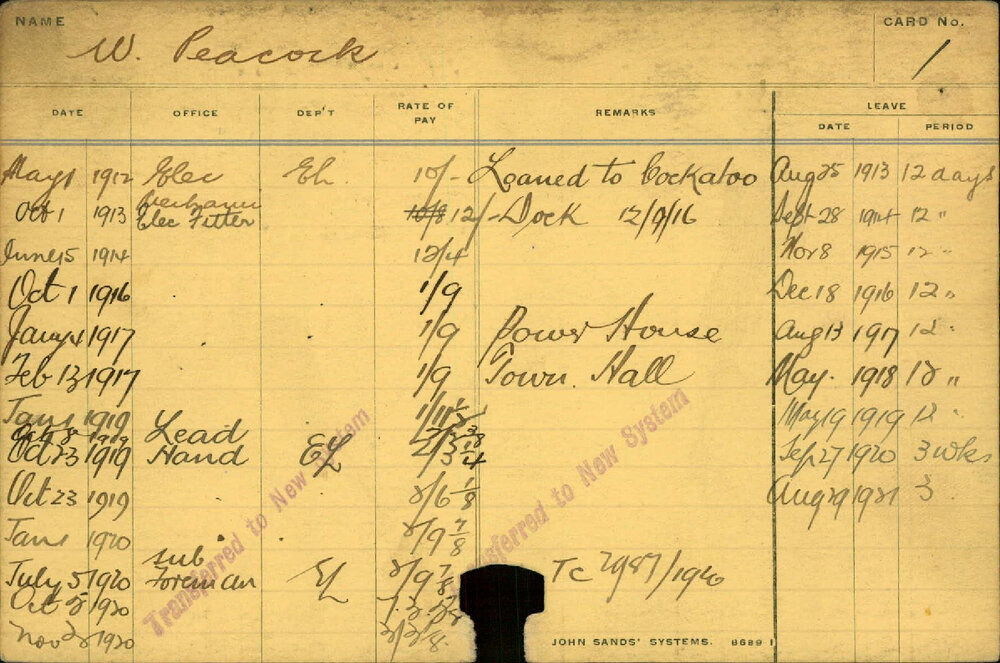 NAME
W. Peacock
CARD No.
1
DATE OFFICE DEP'T RATE OF PAY REMARKS LEAVE
DATE PERIOD
May 1 1912 Elec El. 10/- Loaned to Cockatoo Aug 25 1913 12 days
Mechanic
Oct 1 1913 Elec Fitter 10/8 12/- Dock 12/9/16 Sept 28 1914 12 "
June 15 1914 12/4 Nov 8 1915 12 "
Oct 1 1916 1/9 Dec 18 1916 12 "
Jany 4 1917 1/9 Power House Aug 13 1917 12 "
Feb 13 1917 1/9 Town Hall May. 1918 12 "
Jany 1919 May 19 1919 12 "
Oct 8 1919 Lead
Oct 23 1919 Hand EL Sep 27 1920 3 wks
Oct 23 1919 2/6 1/8 Aug 1921 3
Jany 1920 2/9 7/8
Sub
July 5 1920 Foreman EL 2/9 7/8 Tc 2987/1920
Oct 1920
Nov 1920
Transferred to New System
Transferred to New System
JOHN SANDS' SYSTEMS. 8689 1